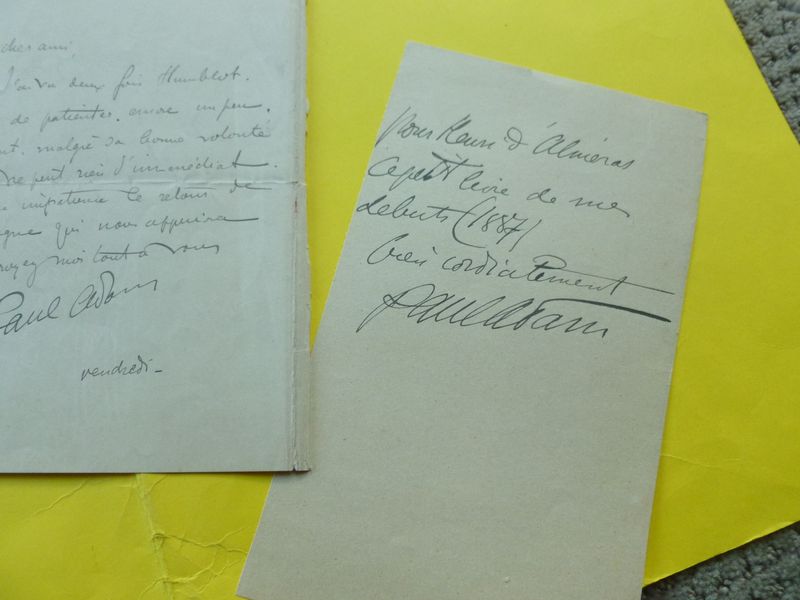 cher ami,
J'ai vu deux fois Humblot.
de patienter encore un peu.
malgré sa bonne volonté
ne peut rien d'immédiat.
le retour de
qui nous appuiera
moi tout à vous
Paul Adam
vendredi -
Pour Henri d'Alméras
ce petit livre de mes
débuts (1887)
bien cordialement
Paul Adam